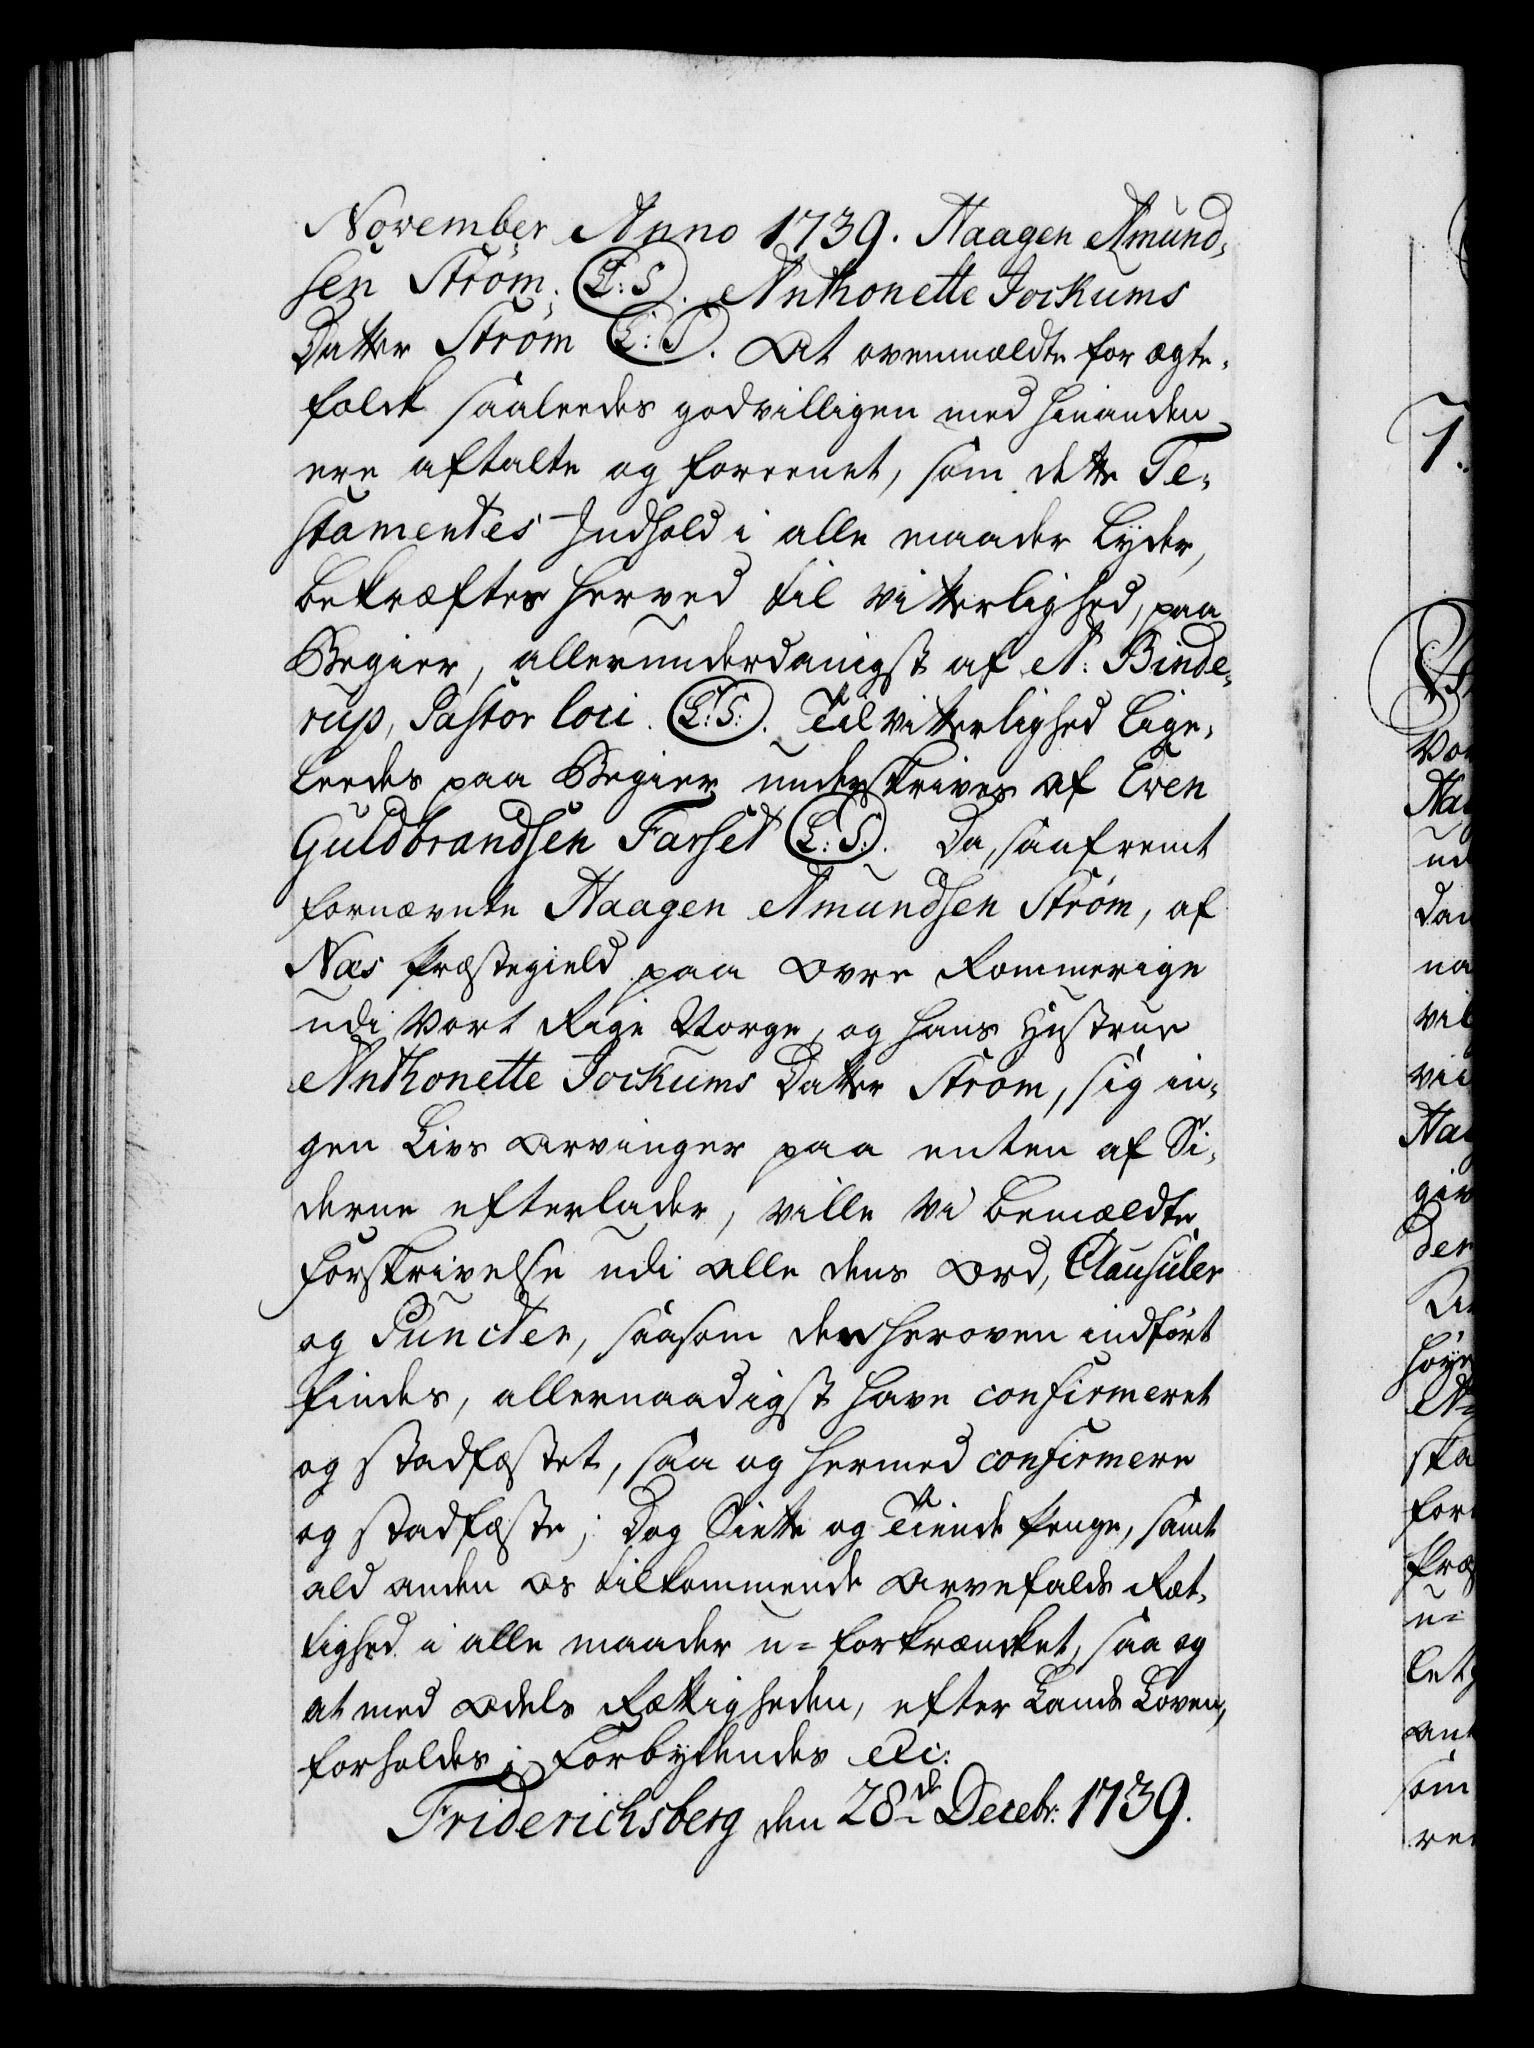 November Anno 1739. Haagen Amund-
sen Strøm. (L:S). Anthonette Jockums
Datter Strøm (L:S). At ovenmeldte for ægte-
folck saaleedes godvilligen med hinanden
ere aftalte og foreenet, som dette Te-
stamentes Indhold i alle maader lyder,
bekræftes herved til vitterlighed, paa
Begier, allerunderdanigst af N: Binde-
rup, Pastor loci. (L:S:). Til vitterlighed lige-
leedes paa Begier underskrives af Even
Guldbrandsen Farset (L:S:). Da, saafremt
fornævnte Haagen Amundsen Strøm, af
Næs Præstegield paa Øvre Rommerige
udi vort Rige Norge, og hans Hustrue
Anthonette Jockums Datter Strøm, sig in-
gen Livs Arvinger paa enten af Si-
derne efterlader, ville vi bemældte
forskrivelse udi alle dens Ord, Clausuler
og Puncter, saasom den heroven indført
findes, allernaadigst have confirmeret
og stadfæstet, saa og hermed confirmere
og stadfæste; Dog Siette og Tiende Penge, samt
ald anden os tilkommende Arvefalds Ræt-
tighed i alle maader u-forkrencket, saa og
at med Odels Rettigheden, efter Lands Loven,
forholdes; Forbydendes etc:
Friderichsberg den 28de Decebr: 1739.